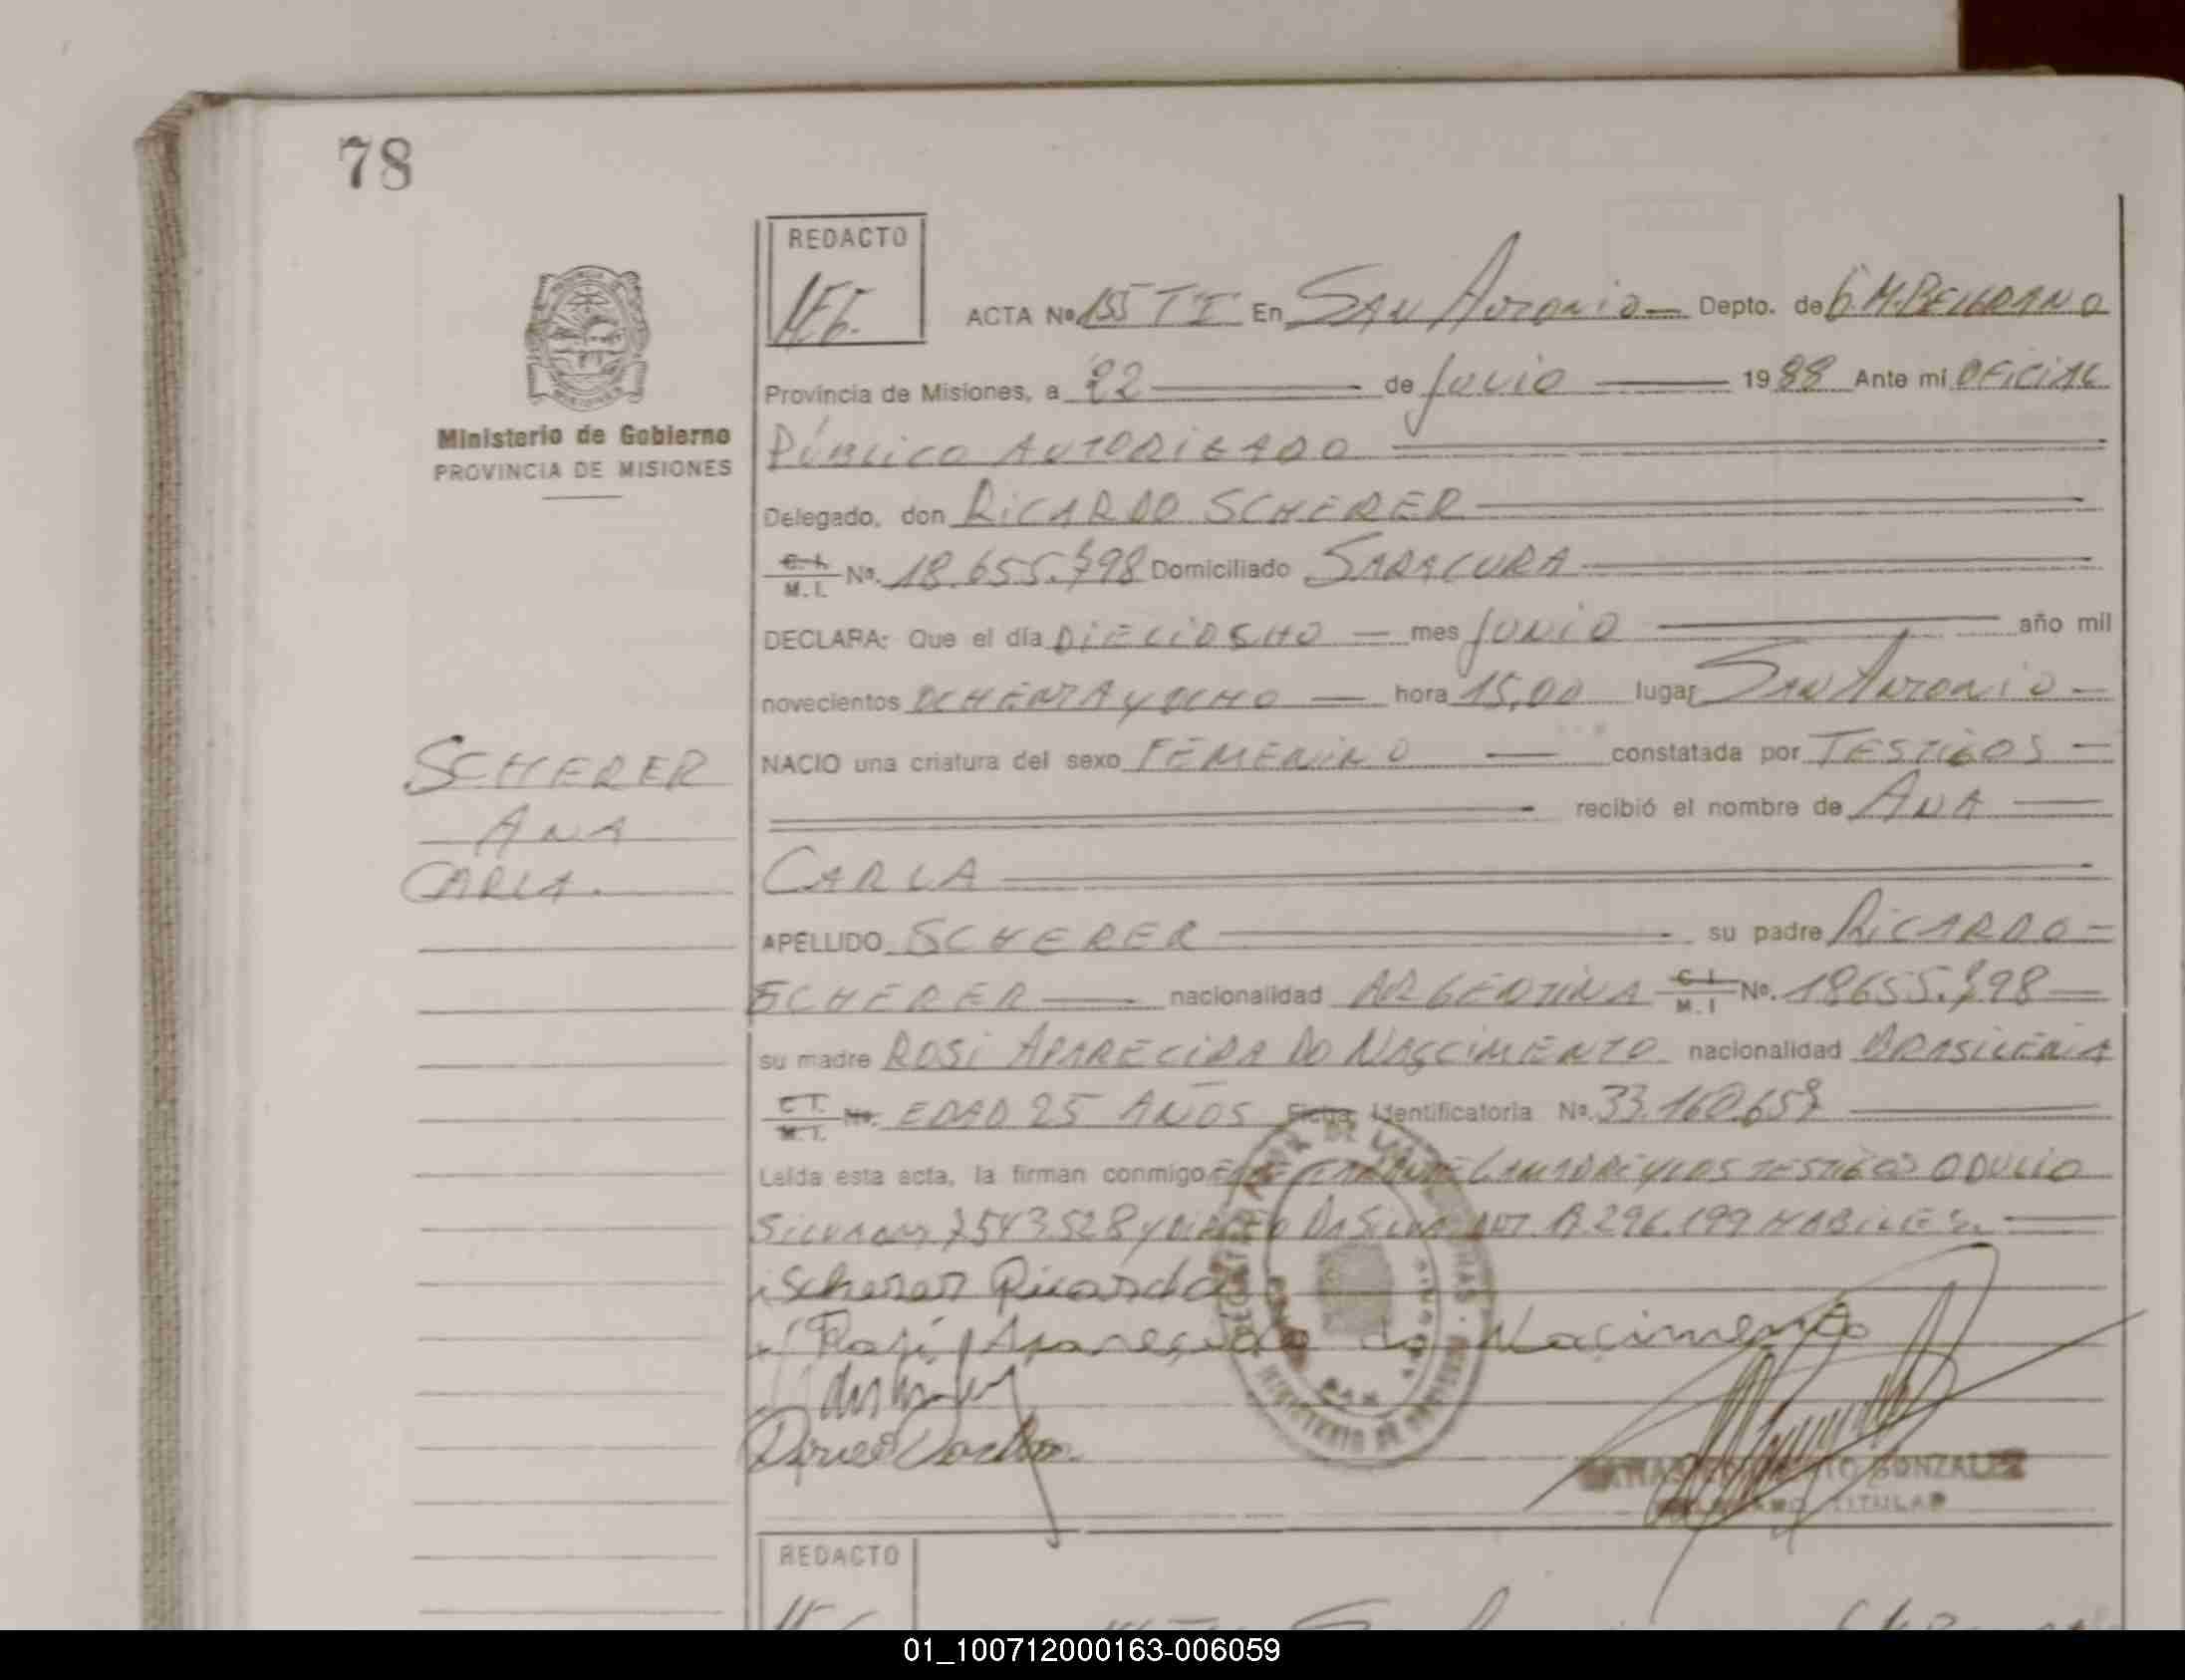 78
REDACTO
ACTA Nº 155 TI En SAN ANTONIO Depto. de G.M.BELGRANO
Provincia de Misiones, a 22 de JULIO 1988 Ante mí OFICIAL
Ministerio de Gobierno
PROVINCIA DE MISIONES
PÚBLICO AUTORIZADO
Delegado, don RICARDO SCHERER
C.I. M.I. Nº. 18.655.798 Domiciliado SARACURA
DECLARA: Que el día DIECIOCHO mes JUNIO año mil
novecientos OCHENTA Y OCHO hora 15,00 lugar SAN ANTONIO
NACIO una criatura del sexo FEMENINO constatada por TESTIGOS
recibió el nombre de ANA
CARLA
SCHERER
ANA
CARLA.
APELLIDO SCHERER su padre RICARDO
SCHERER nacionalidad ARGENTINA C.I. M.I Nº. 18655.798
su madre ROSI APARECIDA DO NASCIMIENTO nacionalidad BRASILEÑA
C.I. M.I. Nº. EDAD 25 AÑOS Ficha Identificatoria Nº. 33.160.657
Leída esta acta, la firman conmigo LA MADRE Y LOS TESTIGOS ODULIO
7543.528 Y DA SILVA 296.199 HABILES.
Scherer Ricardo
Rosi Aparecida do Nacimento
GONZALEZ
TITULAR
REDACTO
01_100712000163-006059